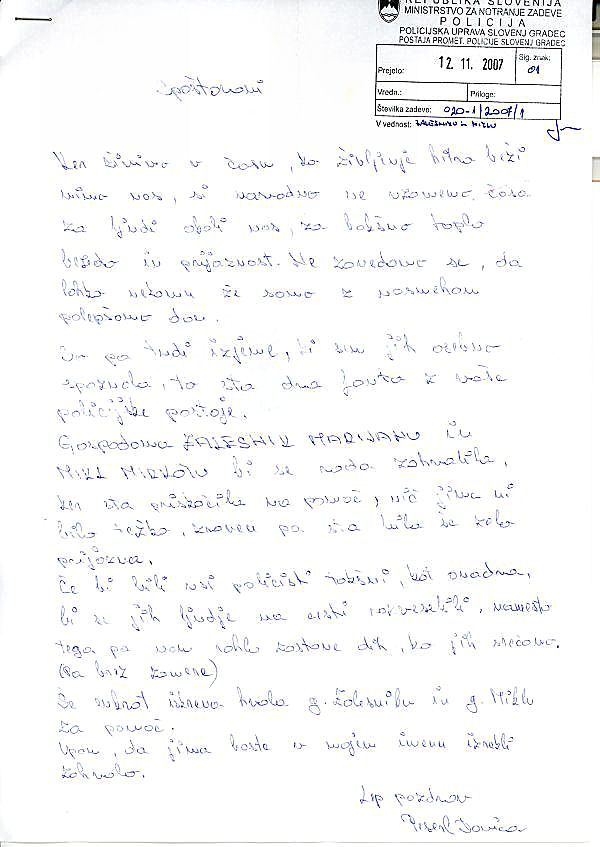 REPUBLIKA SLOVENIJA
MINISTRSTVO ZA NOTRANJE ZADEVE
POLICIJA
POLICIJSKA UPRAVA SLOVENJ GRADEC
POSTAJA PROMET. POLICIJE SLOVENJ GRADEC
Prejeto: 12. 11. 2007 Sig. znak: 01
Vredn.: Priloge:
Številka zadeve: 020-1/2007/1
V vednost:
Spoštovani
Ker živimo v času, ko življenje hitro beži
mimo nas, si navadno ne vzamemo časa
za ljudi okoli nas, za kakšno toplo
besedo in prijaznost. Ne zavedamo se, da
lahko nekomu že samo z nasmehom
polepšamo dan.
So pa tudi izjeme, ki sem jih osebno
spoznala, to sta dva fanta z vaše
policijske postaje.
Gospodoma ZALESNIK MARIJANU in
MIKL MIRKOTU bi se rada zahvalila,
ker sta priskočila na pomoč, nič jima ni
bilo težko, zraven pa sta bila še zelo
prijazna.
Če bi bili vsi policisti takšni, kot onadva,
bi se jih ljudje na cesti razveselili, namesto
tega pa nam lahko zastane dih, ko jih srečamo.
(Pa brez zamere)
Še enkrat iskrena hvala g. Zalesniku in g. Miklu
za pomoč.
Upam, da jima boste v mojem imenu izrekli
zahvalo.
Lep pozdrav